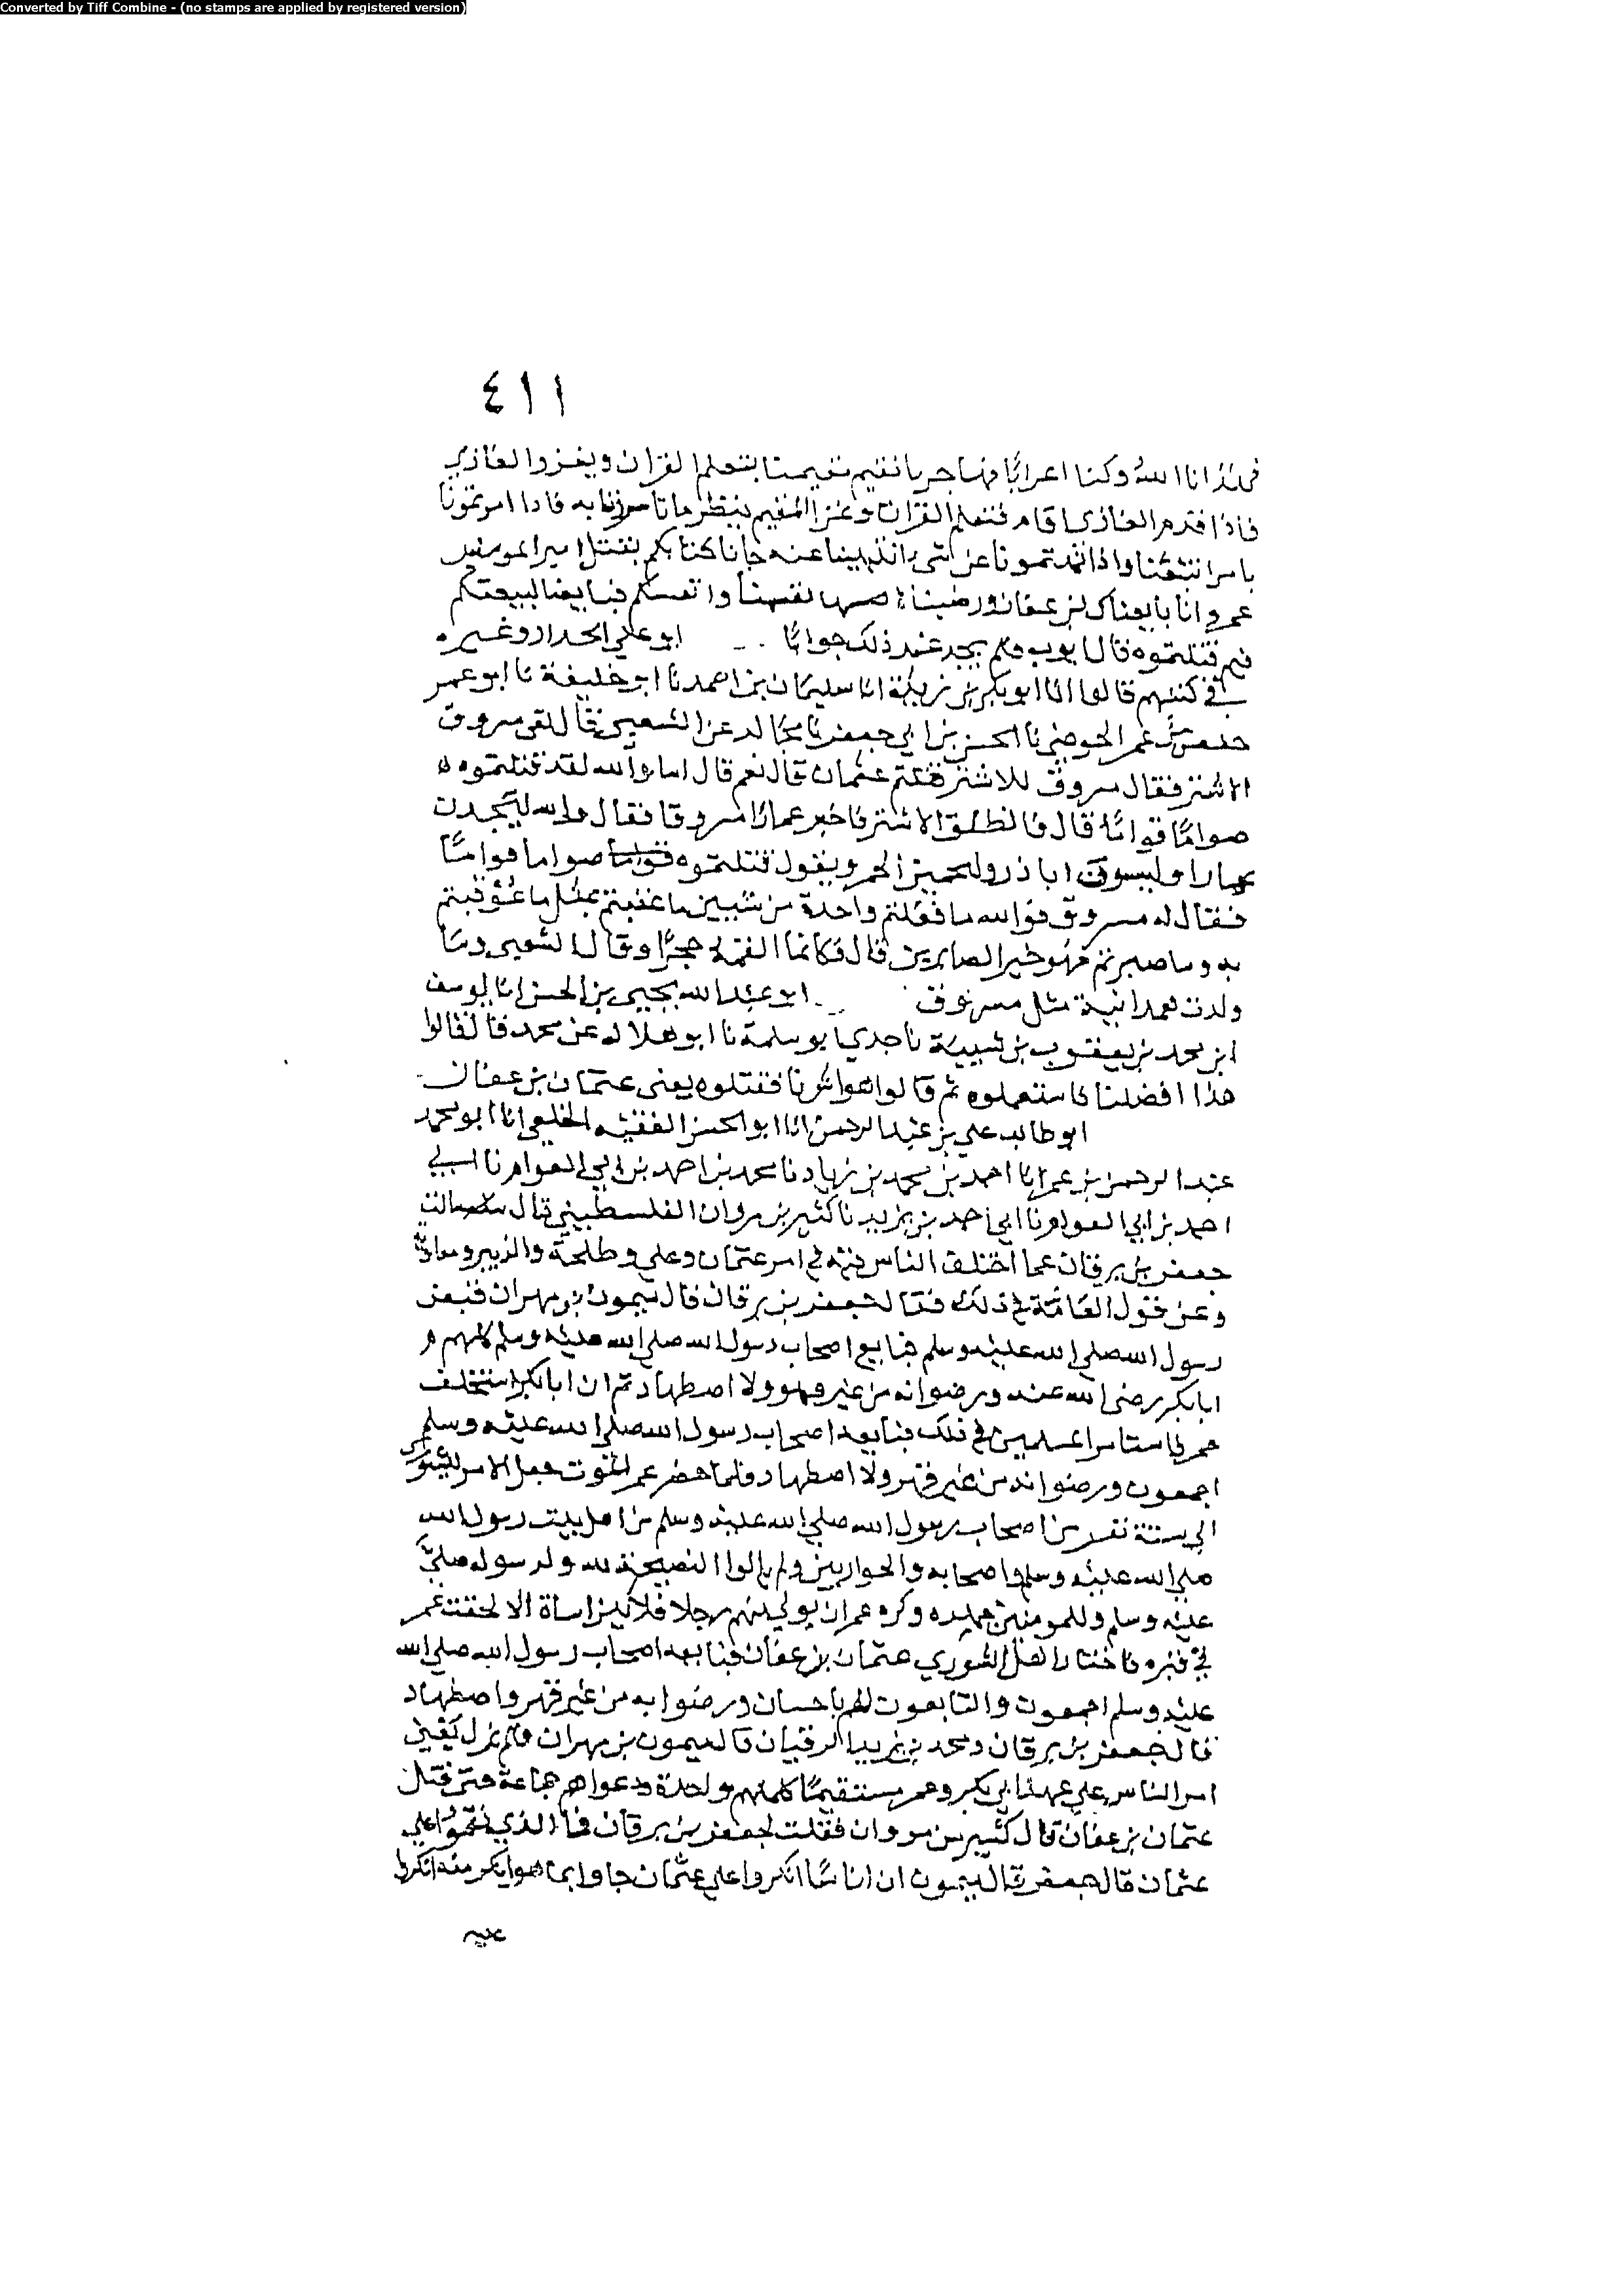 Converted by Tiff Combine - (no stamps are applied by registered version)
٤١١
انا الله وكنا اعرابا فهاجرنا نقيم مقيمنا يتعلم القران ويغزوا الغازي
فاذا قدم الغازي اقام فتعلم القران وغزا المقيم ننظر ما تامروننا به فاذا امرتمونا
بامر اتبعناه واذا نهيتمونا عن شيء انتهينا عنه جانا كتابكم بقتل امير المومنين
عمر وانا بايعنا لابن عفان ورضينا لانفسنا ولكم فبايعنا لبيعتكم
فبم قتلتموه قال ايوب فلم يجد عند ذلك جوابا ابو علي الحداد وغيره
في كتبهم قالوا انا ابو بكر بن ريذة انا سليمان بن احمد نا ابو خليفة نا ابو عمر
حفص بن عمر الحوضي نا الحسن بن ابي جعفر نا مجالد عن الشعبي قال لقي مسروق
الاشتر فقال مسروق للاشتر قتلتم عثمان قال نعم قال اما والله لقد قتلتموه
صواما قواما قال فانطلق الاشتر فاخبر عمارا فاتا عمار مسروقا فقال والله ليجلدن
عمارا وليسيرن ابا ذر وليحمين الحمى ويقول قتلتموه صواما قواما
فقال له مسروق فوالله ما فعلتم واحدة من ثنتين ما عاقبتم بمثل ما عوقبتم
به وما صبرتم فهو خير الصابرين قال فكانما القمه حجرا وقال الشعبي وما
ولدت همدانية مثل مسروق ابو عبد الله يحيى بن الحسن انا ابو يوسف
ابن محمد بن يعقوب بن شيبة نا جدي نا ابو سلمة نا ابو هلال عن محمد قال قالوا
هذا افضلنا فاستعملوه ثم قالوا هو اشرنا فقتلوه يعني عثمان بن عفان
ابو طالب علي بن عبد الرحمن انا ابو الحسن الفقيه الخلعي انا ابو محمد
عبد الرحمن بن عمر انا احمد بن محمد بن زياد نا محمد بن احمد بن ابي العوام نا ابي
احمد بن ابي العوام نا ابي احمد بن يزيد نا كثير بن مروان الفلسطيني قال سالت
جعفر بن برقان عما اختلف الناس فيه في امر عثمان وعلي وطلحة والزبير ومعاوية
وعن قول العامة في ذلك فقال جعفر بن برقان قال ميمون بن مهران قبض
رسول الله صلى الله عليه وسلم فبايع اصحاب رسول الله صلى الله عليه وسلم كلهم
ابا بكر رضي الله عنه ورضوا به من غير قهر ولا اضطهاد ثم ان ابا بكر استخلف
عمر فاستامر المسلمين في ذلك فبايعه اصحاب رسول الله صلى الله عليه وسلم
اجمعون ورضوا به من غير قهر ولا اضطهاد فلما حضر عمر الموت جعل الامر للشورى
الى ستة نفر من اصحاب رسول الله صلى الله عليه وسلم من اهل بيت رسول الله
صلى الله عليه وسلم واصحابه والحواريين ولم يالوا النصيحة لله ولرسوله صلى
عليه وسلم وللمومنين جهده وكره عمر ان يولي منهم رجلا فلا تكون اساة الا لحقت عمر
في قبره فاختار اهل الشورى عثمان بن عفان فبايعه اصحاب رسول الله صلى الله
عليه وسلم اجمعون والتابعون لهم باحسان ورضوا به من غير قهر واضطهاد
قال جعفر بن برقان ومحمد بن يزيد الرقيان قال ميمون بن مهران فلم يزل
امر الناس على عهد ابي بكر وعمر مستقيما كلمتهم واحدة ودعواهم جماعة حتى قتل
عثمان بن عفان قال كثير بن مروان فقلت لجعفر بن برقان فما الذي نقموا على
عثمان قال جعفر قال ميمون ان اناسا انكروا على عثمان جاوا بما هو انكر منه انكروا
عليه